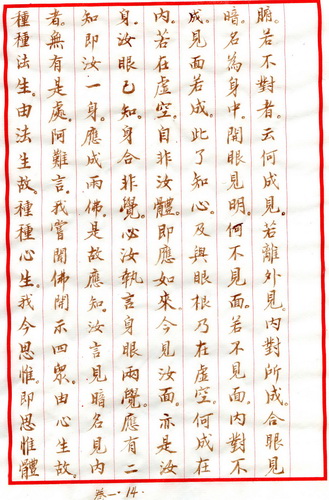 腑。若不對者。云何成見。若離外見。內對所成。合眼見
暗。名為身中。開眼見明。何不見面。若不見面。內對不
成。見面若成。此了知心。及與眼根。乃在虛空。何成在
內。若在虛空。自非汝體。即應如來。今見汝面。亦是汝
身。汝眼已知。身合非覺。必汝執言。身眼兩覺。應有二
知。即汝一身。應成兩佛。是故應知。汝言見暗。名見內
者。無有是處。阿難言。我嘗聞佛開示四眾。由心生故。
種種法生。由法生故。種種心生。我今思惟。即思惟體
卷一.14.